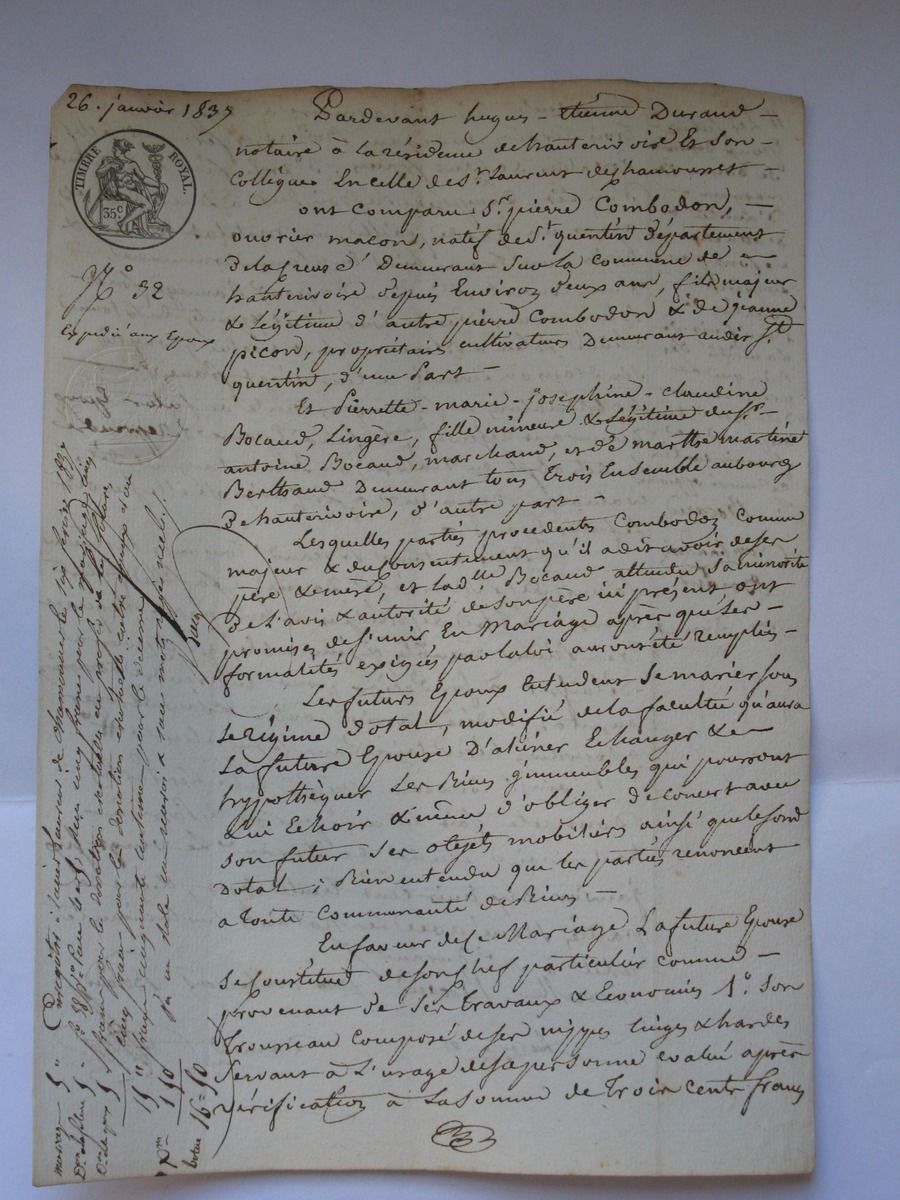 26. janvier 1837
TIMBRE ROYAL.
35 c
N° 32
Expédié aux Epoux
Pardevant hugues - étienne Durand -
notaire à la résidence de hauterivoire Et son -
Collègue En celle de St. Laurent de chamousset -
ont Comparu Sr. pierre Combodon, -
ouvrier maçon, natif de St. quentin département
de la Creuse Demeurant Sur la Commune de -
hauterivoire depuis Environ deux ans, fils majeur
& Légitime d'autre pierre Combodon & de jeanne
picon, propriétaires cultivateurs Demeurant audit St.
quentin, d'une Part -
Et Pierrette - marie - josephine - claudine
Bocaud, Lingère, fille mineure & Légitime du Sr.
antoine Bocaud, marchand, et de marthe martine
Berthaud Demeurant tous Trois Ensemble au bourg
de hauterivoire, d'autre part -
Lesquelles parties procedents Combodon Comme
majeur & du Consentement qu'il a dit avoir de ses
père & mère, et la dlle Bocaud attendu Sa minorité
De L'avis & autorité de son père ici présent, ont
promises de S'unir En Mariage après que Les -
formalités exigées par la loi auront été remplies -
Les futurs Epoux Entendent Se marier Sous
Le régime dotal, modifié de la faculté qu'aura
La future Epouse D'aliéner Echanger & -
hypothéquer Les Biens immeubles qui pourront
Lui Echoir & même d'obliger de concert avec
son futur Ses objets mobiliers ainsi que le fond
Dotal ; Bien entendu que les parties renoncent
a Toute Communauté de Biens -
En faveur de ce Mariage La future Epouse
Se Constitue de son chef particulier comme -
provenant de Ses Travaux & Economies 1°. Son
Trousseau Composé de ses nippes linges & hardes
Servant à L'usage de sa personne evalué après
vérification à La Somme de Trois Cents francs
Enregistré à Saint Laurent de chamousset le six février 1837
cinq francs pour le mariage, cinq
francs pour la donation
cinq francs pour la donation
francs cinquante centimes pour le décime
15 "
1 50
16 - 50